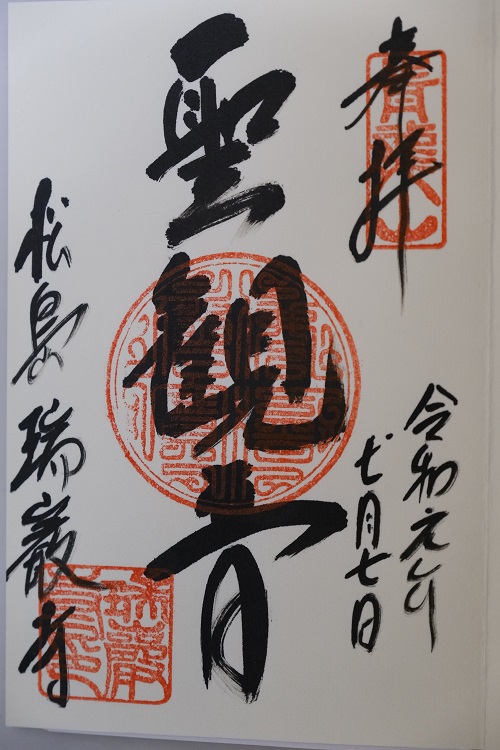 奉拝
令和元年
七月七日
聖観音
松島 瑞巌寺